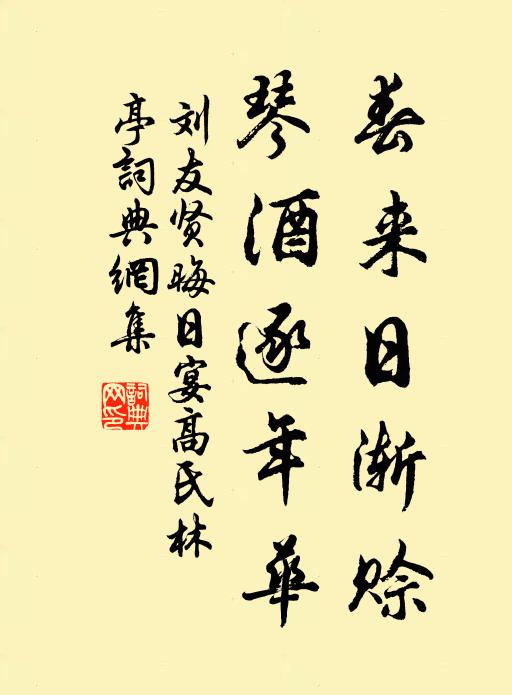 春来日渐赊
琴酒逐年华
刘友贤晦日宴高氏林
亭詞典網集
詞典網印